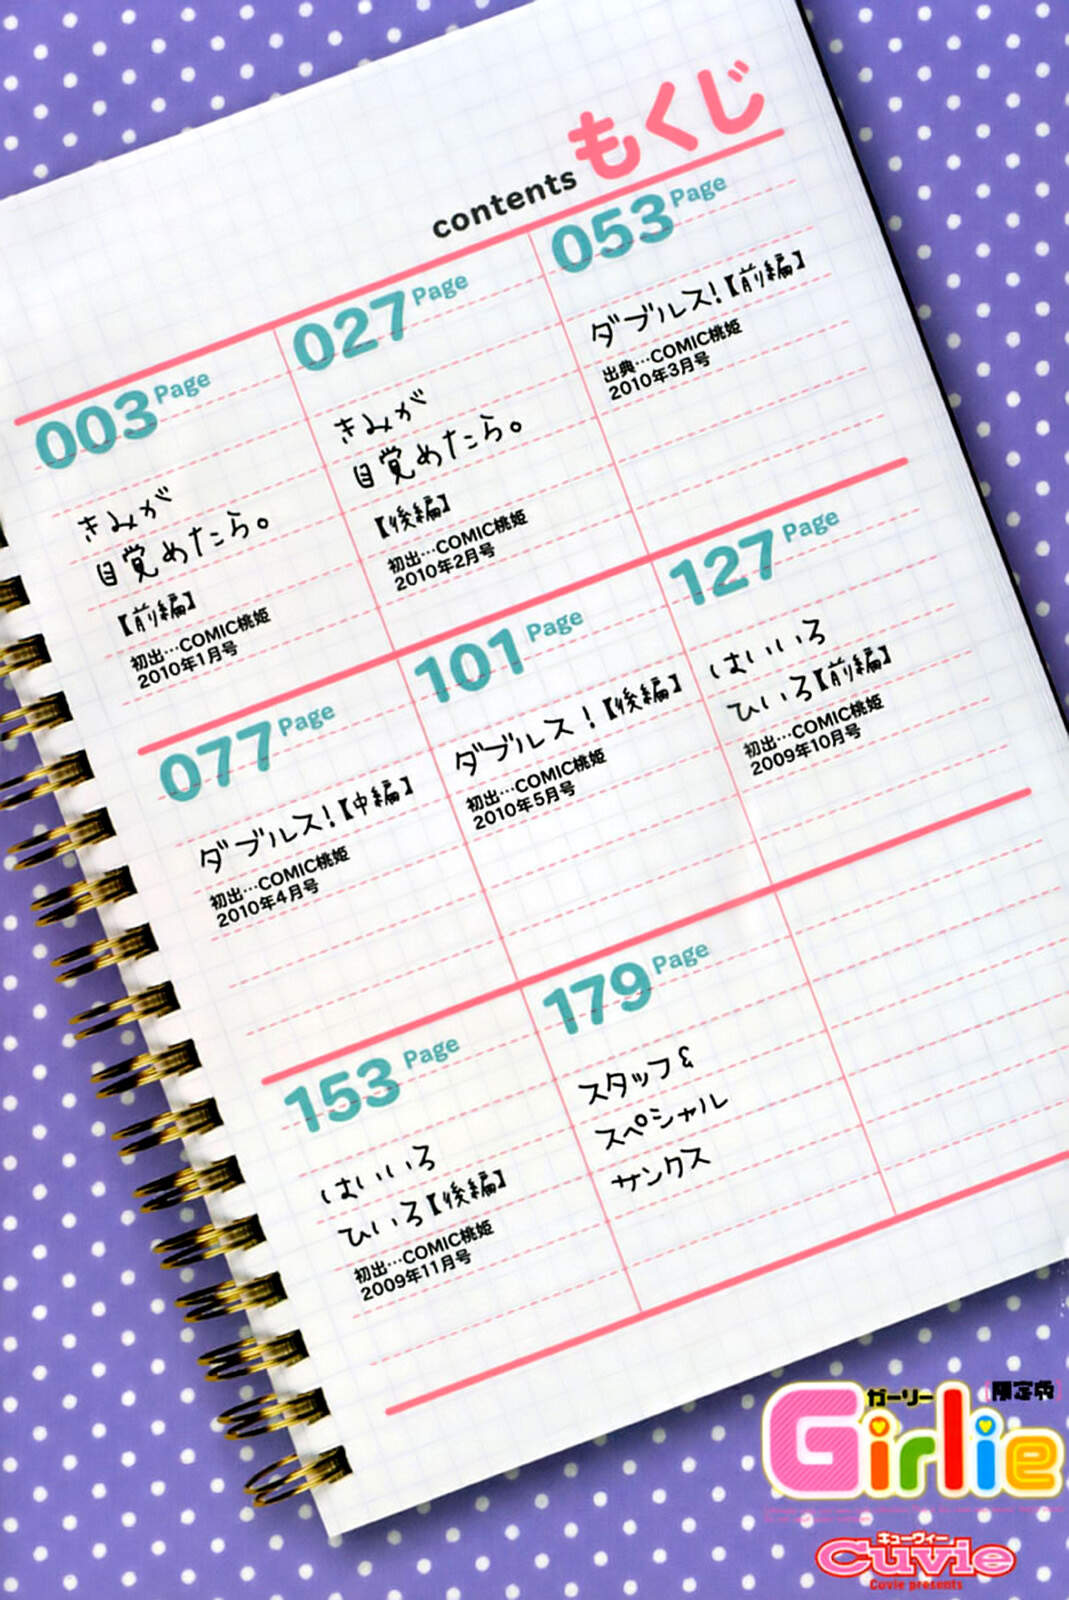 contents もくじ
003 Page
きみが
目覚めたら。
【前編】
初出…COMIC桃姫
2010年1月号
027 Page
きみが
目覚めたら。
【後編】
初出…COMIC桃姫
2010年2月号
053 Page
ダブルス!【前編】
出典…COMIC桃姫
2010年3月号
077 Page
ダブルス!【中編】
初出…COMIC桃姫
2010年4月号
101 Page
ダブルス!【後編】
初出…COMIC桃姫
2010年5月号
127 Page
はいいろ
ひいろ【前編】
初出…COMIC桃姫
2009年10月号
153 Page
はいいろ
ひいろ【後編】
初出…COMIC桃姫
2009年11月号
179 Page
スタッフ&
スペシャル
サンクス
ガーリー
限定版
Girlie
キューヴィー
Cuvie
Cuvie presents